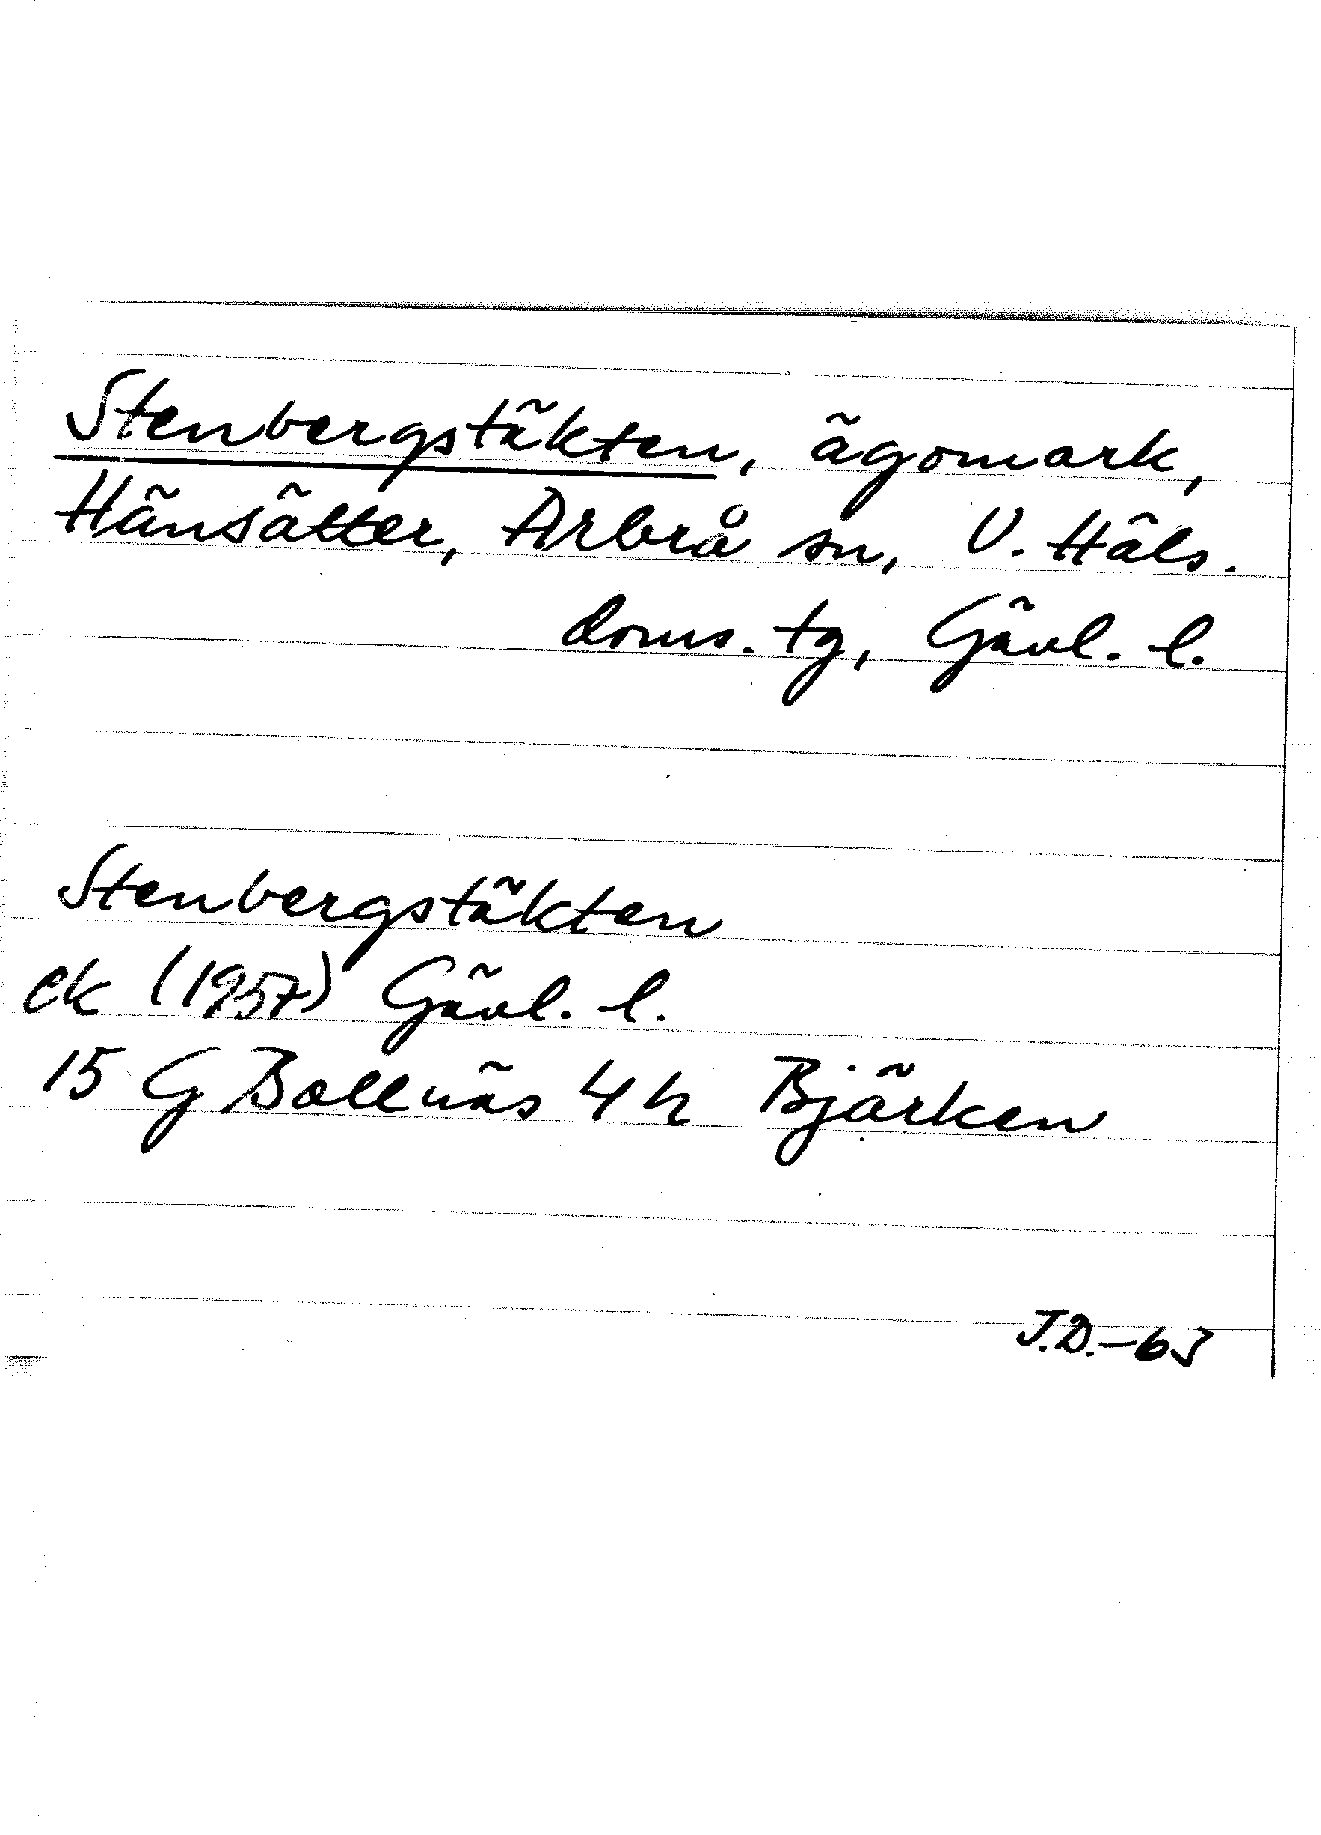 Stenbergstäkten, ägomark,
Hänsätter, Arbrå sn, V. Häls.
doms. tg, Gävl. l.
Stenbergstäkten
ek (1957) Gävl. l.
15 G Bollnäs 4 h Bjärken
J.D.-63